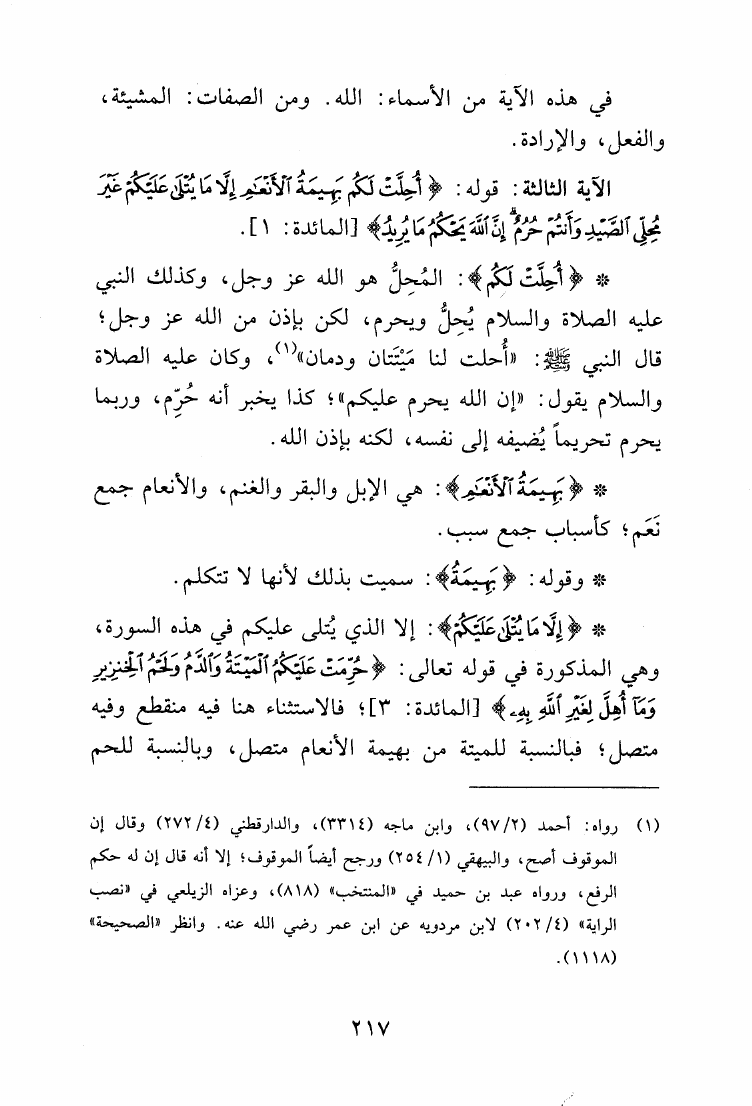 في هذه الآية من الأسماء: الله. ومن الصفات: المشيئة،
والفعل، والإرادة.
الآية الثالثة: قوله: ﴿أُحِلَّتْ لَكُم بَهِيمَةُ ٱلْأَنْعَٰمِ إِلَّا مَا يُتْلَىٰ عَلَيْكُمْ غَيْرَ
مُحِلِّى ٱلصَّيْدِ وَأَنتُمْ حُرُمٌ ۗ إِنَّ ٱللَّهَ يَحْكُمُ مَا يُرِيدُ﴾ [المائدة: ١].
* ﴿أُحِلَّتْ لَكُم﴾: المُحِلُّ هو الله عز وجل، وكذلك النبي
عليه الصلاة والسلام يُحِلُّ ويحرم، لكن بإذن من الله عز وجل؛
قال النبي ﷺ: «أُحلت لنا مَيْتَتان ودمان»(١)، وكان عليه الصلاة
والسلام يقول: «إن الله يحرم عليكم»؛ كذا يخبر أنه حُرِّم، وربما
يحرم تحريماً يُضيفه إلى نفسه، لكنه بإذن الله.
* ﴿بَهِيمَةُ ٱلْأَنْعَٰمِ﴾: هي الإبل والبقر والغنم، والأنعام جمع
نَعَم؛ كأسباب جمع سبب.
* وقوله: ﴿بَهِيمَةُ﴾: سميت بذلك لأنها لا تتكلم.
* ﴿إِلَّا مَا يُتْلَىٰ عَلَيْكُمْ﴾: إلا الذي يُتلى عليكم في هذه السورة،
وهي المذكورة في قوله تعالى: ﴿حُرِّمَتْ عَلَيْكُمُ ٱلْمَيْتَةُ وَٱلدَّمُ وَلَحْمُ ٱلْخِنزِيرِ
وَمَآ أُهِلَّ لِغَيْرِ ٱللَّهِ بِهِۦ﴾ [المائدة: ٣]؛ فالاستثناء هنا فيه منقطع وفيه
متصل؛ فبالنسبة للميتة من بهيمة الأنعام متصل، وبالنسبة للحم
(١) رواه: أحمد (٩٧/٢)، وابن ماجه (٣٣١٤)، والدارقطني (٢٧٢/٤) وقال إن
الموقوف أصح، والبيهقي (٢٥٤/١) ورجح أيضاً الموقوف؛ إلا أنه قال إن له حكم
الرفع، ورواه عبد بن حميد في «المنتخب» (٨١٨)، وعزاه الزيلعي في «نصب
الراية» (٢٠٢/٤) لابن مردويه عن ابن عمر رضي الله عنه. وانظر «الصحيحة»
(١١١٨).
٢١٧